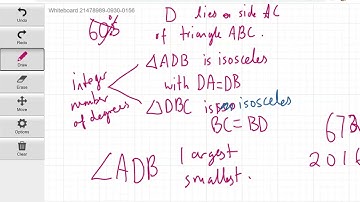 Whiteboard 21478989-0930-0156
Undo
Redo
Draw
Erase
More
Move
Options
Zoom
D lies on side AC
of triangle ABC.
∠ADB is isosceles
with DA=DB
integer
number
of degrees
∠DBC is isosceles
BC=BD
∠ADB largest
smallest.
2016